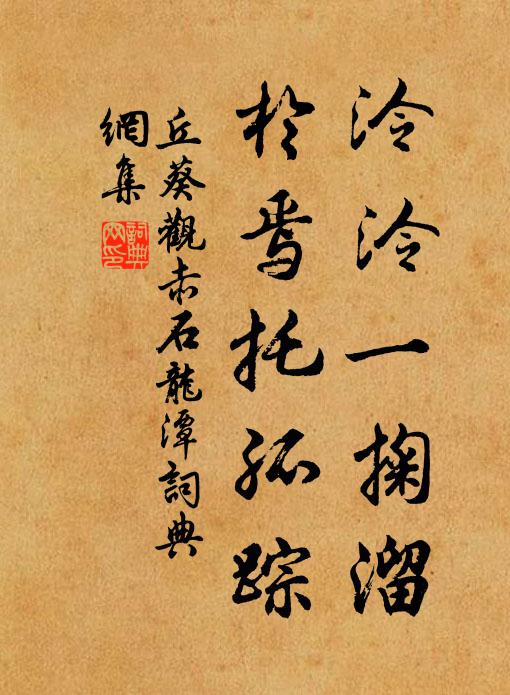 泠泠一掬溜
於焉托孤踪
丘葵觀赤石龍潭詞典
網集
詞典
网印